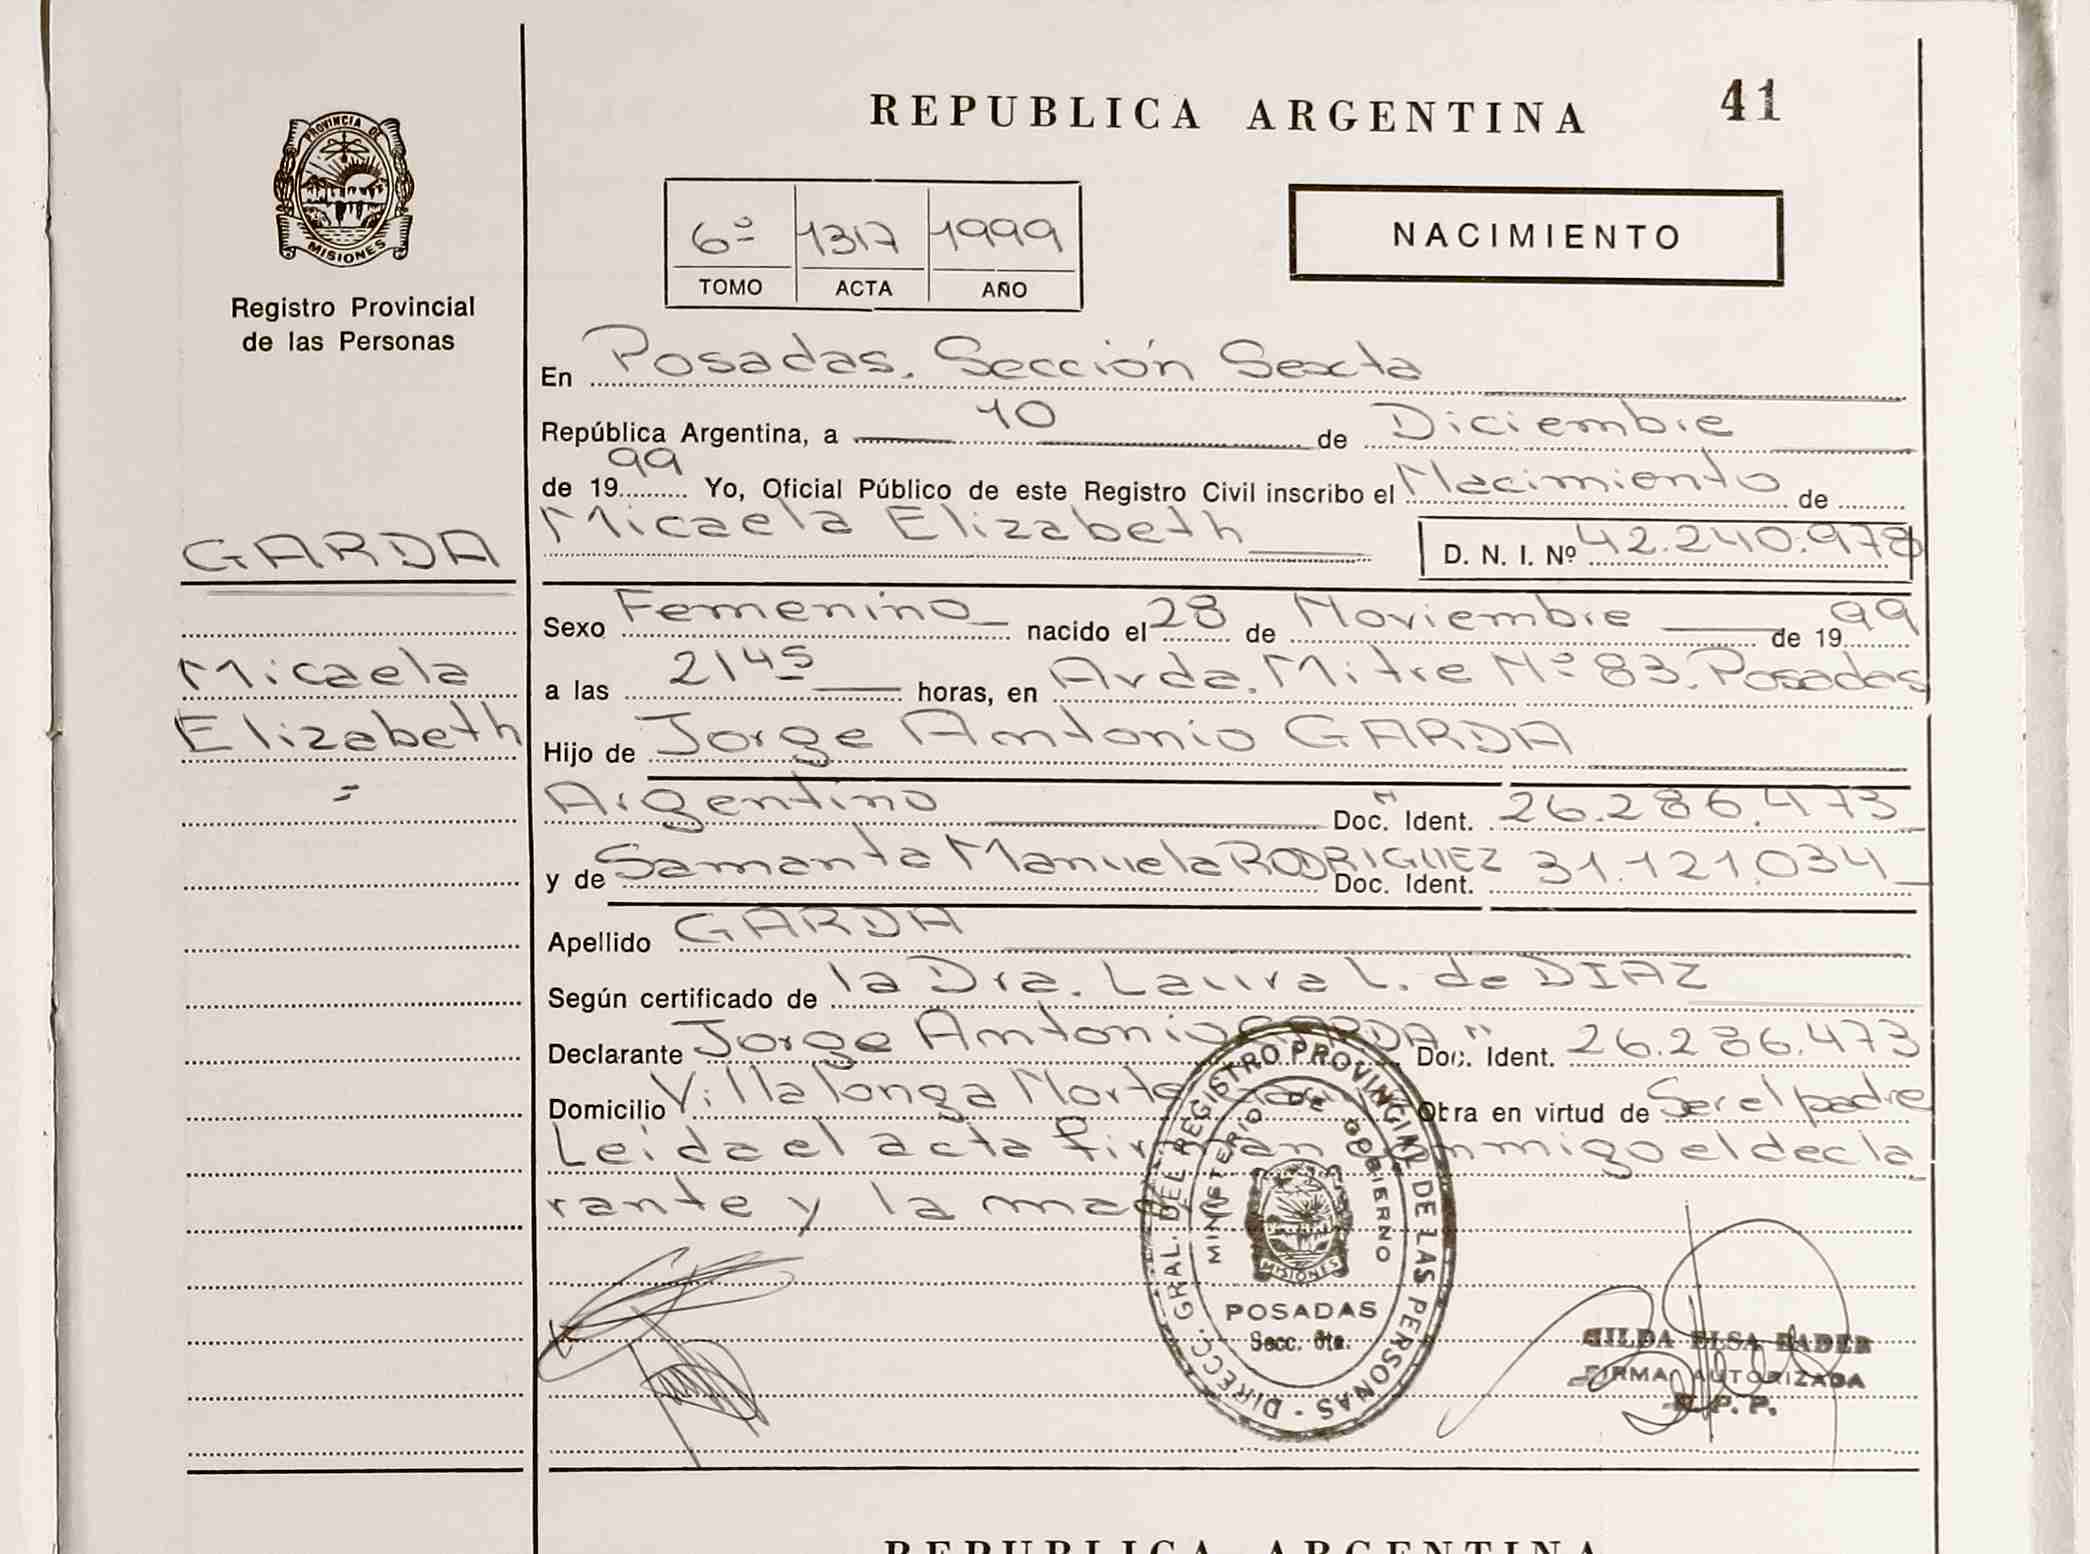 REPUBLICA ARGENTINA
41
PROVINCIA DE
MISIONES
Registro Provincial
de las Personas
6º 1317 1999
TOMO ACTA AÑO
NACIMIENTO
En Posadas. Sección Sexta
República Argentina, a 10 de Diciembre
de 1999 Yo, Oficial Público de este Registro Civil inscribo el Nacimiento de
Micaela Elizabeth D. N. I. Nº 42.240.978
GARDA
Micaela
Elizabeth
=
Sexo Femenino nacido el 28 de Noviembre de 1999
a las 21 45 horas, en Avda. Mitre Nº 83. Posadas
Hijo de Jorge Antonio GARDA
Argentino Doc. Ident. 26.286.473
y de Samanta Manuela RODRIGUEZ Doc. Ident. 31.121.034
Apellido GARDA
Según certificado de la Dra. Laura L. de DIAZ
Declarante Jorge Antonio GARDA Doc. Ident. 26.286.473
Domicilio Villalonga Norte Obra en virtud de Ser el padre
Leída el acta firman conmigo el decla
rante y la madre
DIRECC. GRAL. DEL REGISTRO PROVINCIAL DE LAS PERSONAS -
MINISTERIO DE GOBIERNO
MISIONES
POSADAS
Secc. 6ta.
GILDA ELSA BADER
FIRMA AUTORIZADA
R. P. P.
REPUBLICA ARGENTINA